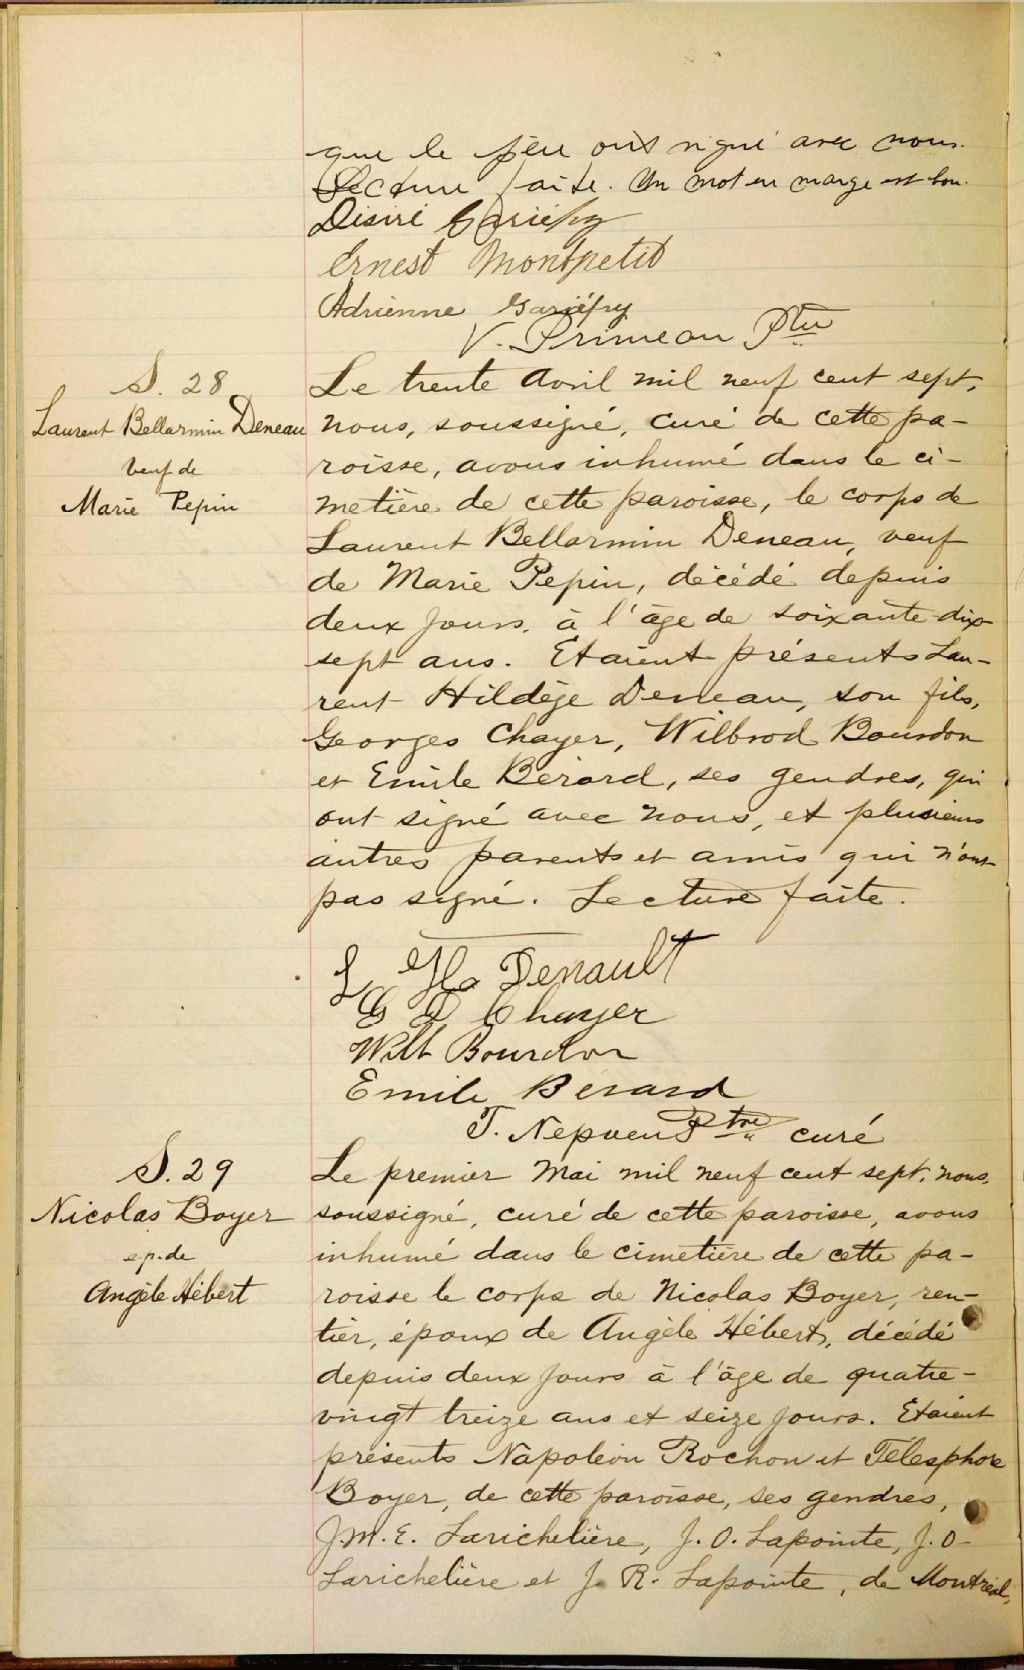 que le père ont signé avec nous.
Lecture faite. Un mot en marge est bon.
Désiré Gariépy
Ernest Montpetit
Adrienne Gariépy
V. Primeau Ptre
S. 28
Laurent Bellarmin Deneau
veuf de
Marie Pepin
Le trente avril mil neuf cent sept,
nous, soussigné, curé de cette pa-
roisse, avons inhumé dans le ci-
metière de cette paroisse, le corps de
Laurent Bellarmin Deneau, veuf
de Marie Pepin, décédé depuis
deux jours, à l'âge de soixante-dix-
sept ans. Etaient présents Lau-
rent Hildège Deneau, son fils,
Georges Chayer, Wilbrod Bourdon
et Emile Bérard, ses gendres, qui
ont signé avec nous, et plusieurs
autres parents et amis qui n'ont
pas signé. Lecture faite.
L H Denault
G D Chayer
Wilb Bourdon
Emile Bérard
T. Nepveu Ptre curé
S. 29
Nicolas Boyer
ep. de
Angèle Hébert
Le premier Mai mil neuf cent sept, nous,
soussigné, curé de cette paroisse, avons
inhumé dans le cimetière de cette pa-
roisse le corps de Nicolas Boyer, ren-
tier, époux de Angèle Hébert, décédé
depuis deux jours à l'âge de quatre-
vingt treize ans et seize jours. Etaient
présents Napoléon Rochon et Télesphore
Boyer, de cette paroisse, ses gendres,
J.M.E. Larichelière, J.O. Lapointe, J.O
Larichelière et J. R. Lapointe, de Montréal,